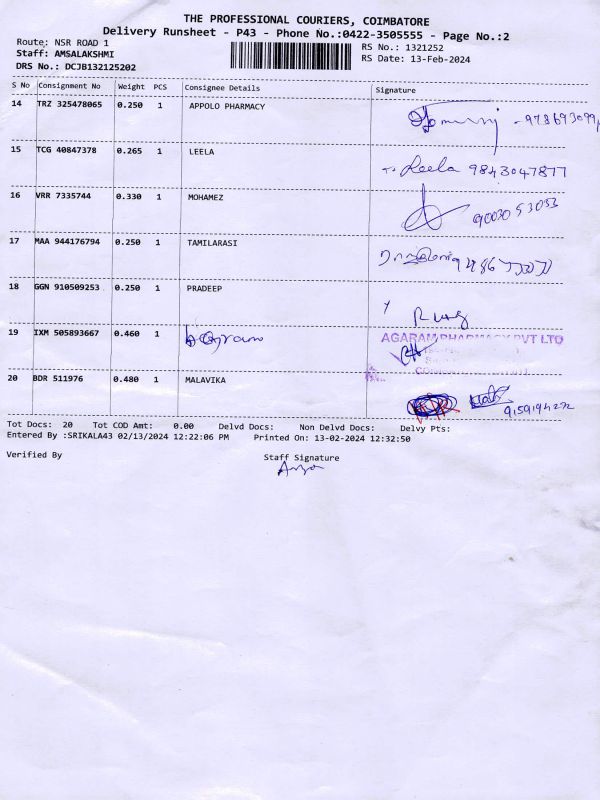 THE PROFESSIONAL COURIERS, COIMBATORE
Delivery Runsheet - P43 - Phone No.:0422-3505555 - Page No.:2
Route: NSR ROAD 1 RS No.: 1321252
Staff: AMSALAKSHMI RS Date: 13-Feb-2024
DRS No.: DCJB132125202
S No Consignment No Weight PCS Consignee Details Signature
14 TRZ 325478065 0.250 1 APPOLO PHARMACY
15 TCG 40847378 0.265 1 LEELA Leela 9843047877
16 VRR 7335744 0.330 1 MOHAMEZ 9003053053
17 MAA 944176794 0.250 1 TAMILARASI
18 GGN 910509253 0.250 1 PRADEEP
19 IXM 505893667 0.460 1 Agaram AGARAM PHARMACY PVT LTD
20 BDR 511976 0.480 1 MALAVIKA 9159194272
Tot Docs: 20 Tot COD Amt: 0.00 Delvd Docs: Non Delvd Docs: Delvy Pts:
Entered By :SRIKALA43 02/13/2024 12:22:06 PM Printed On: 13-02-2024 12:32:50
Verified By Staff Signature